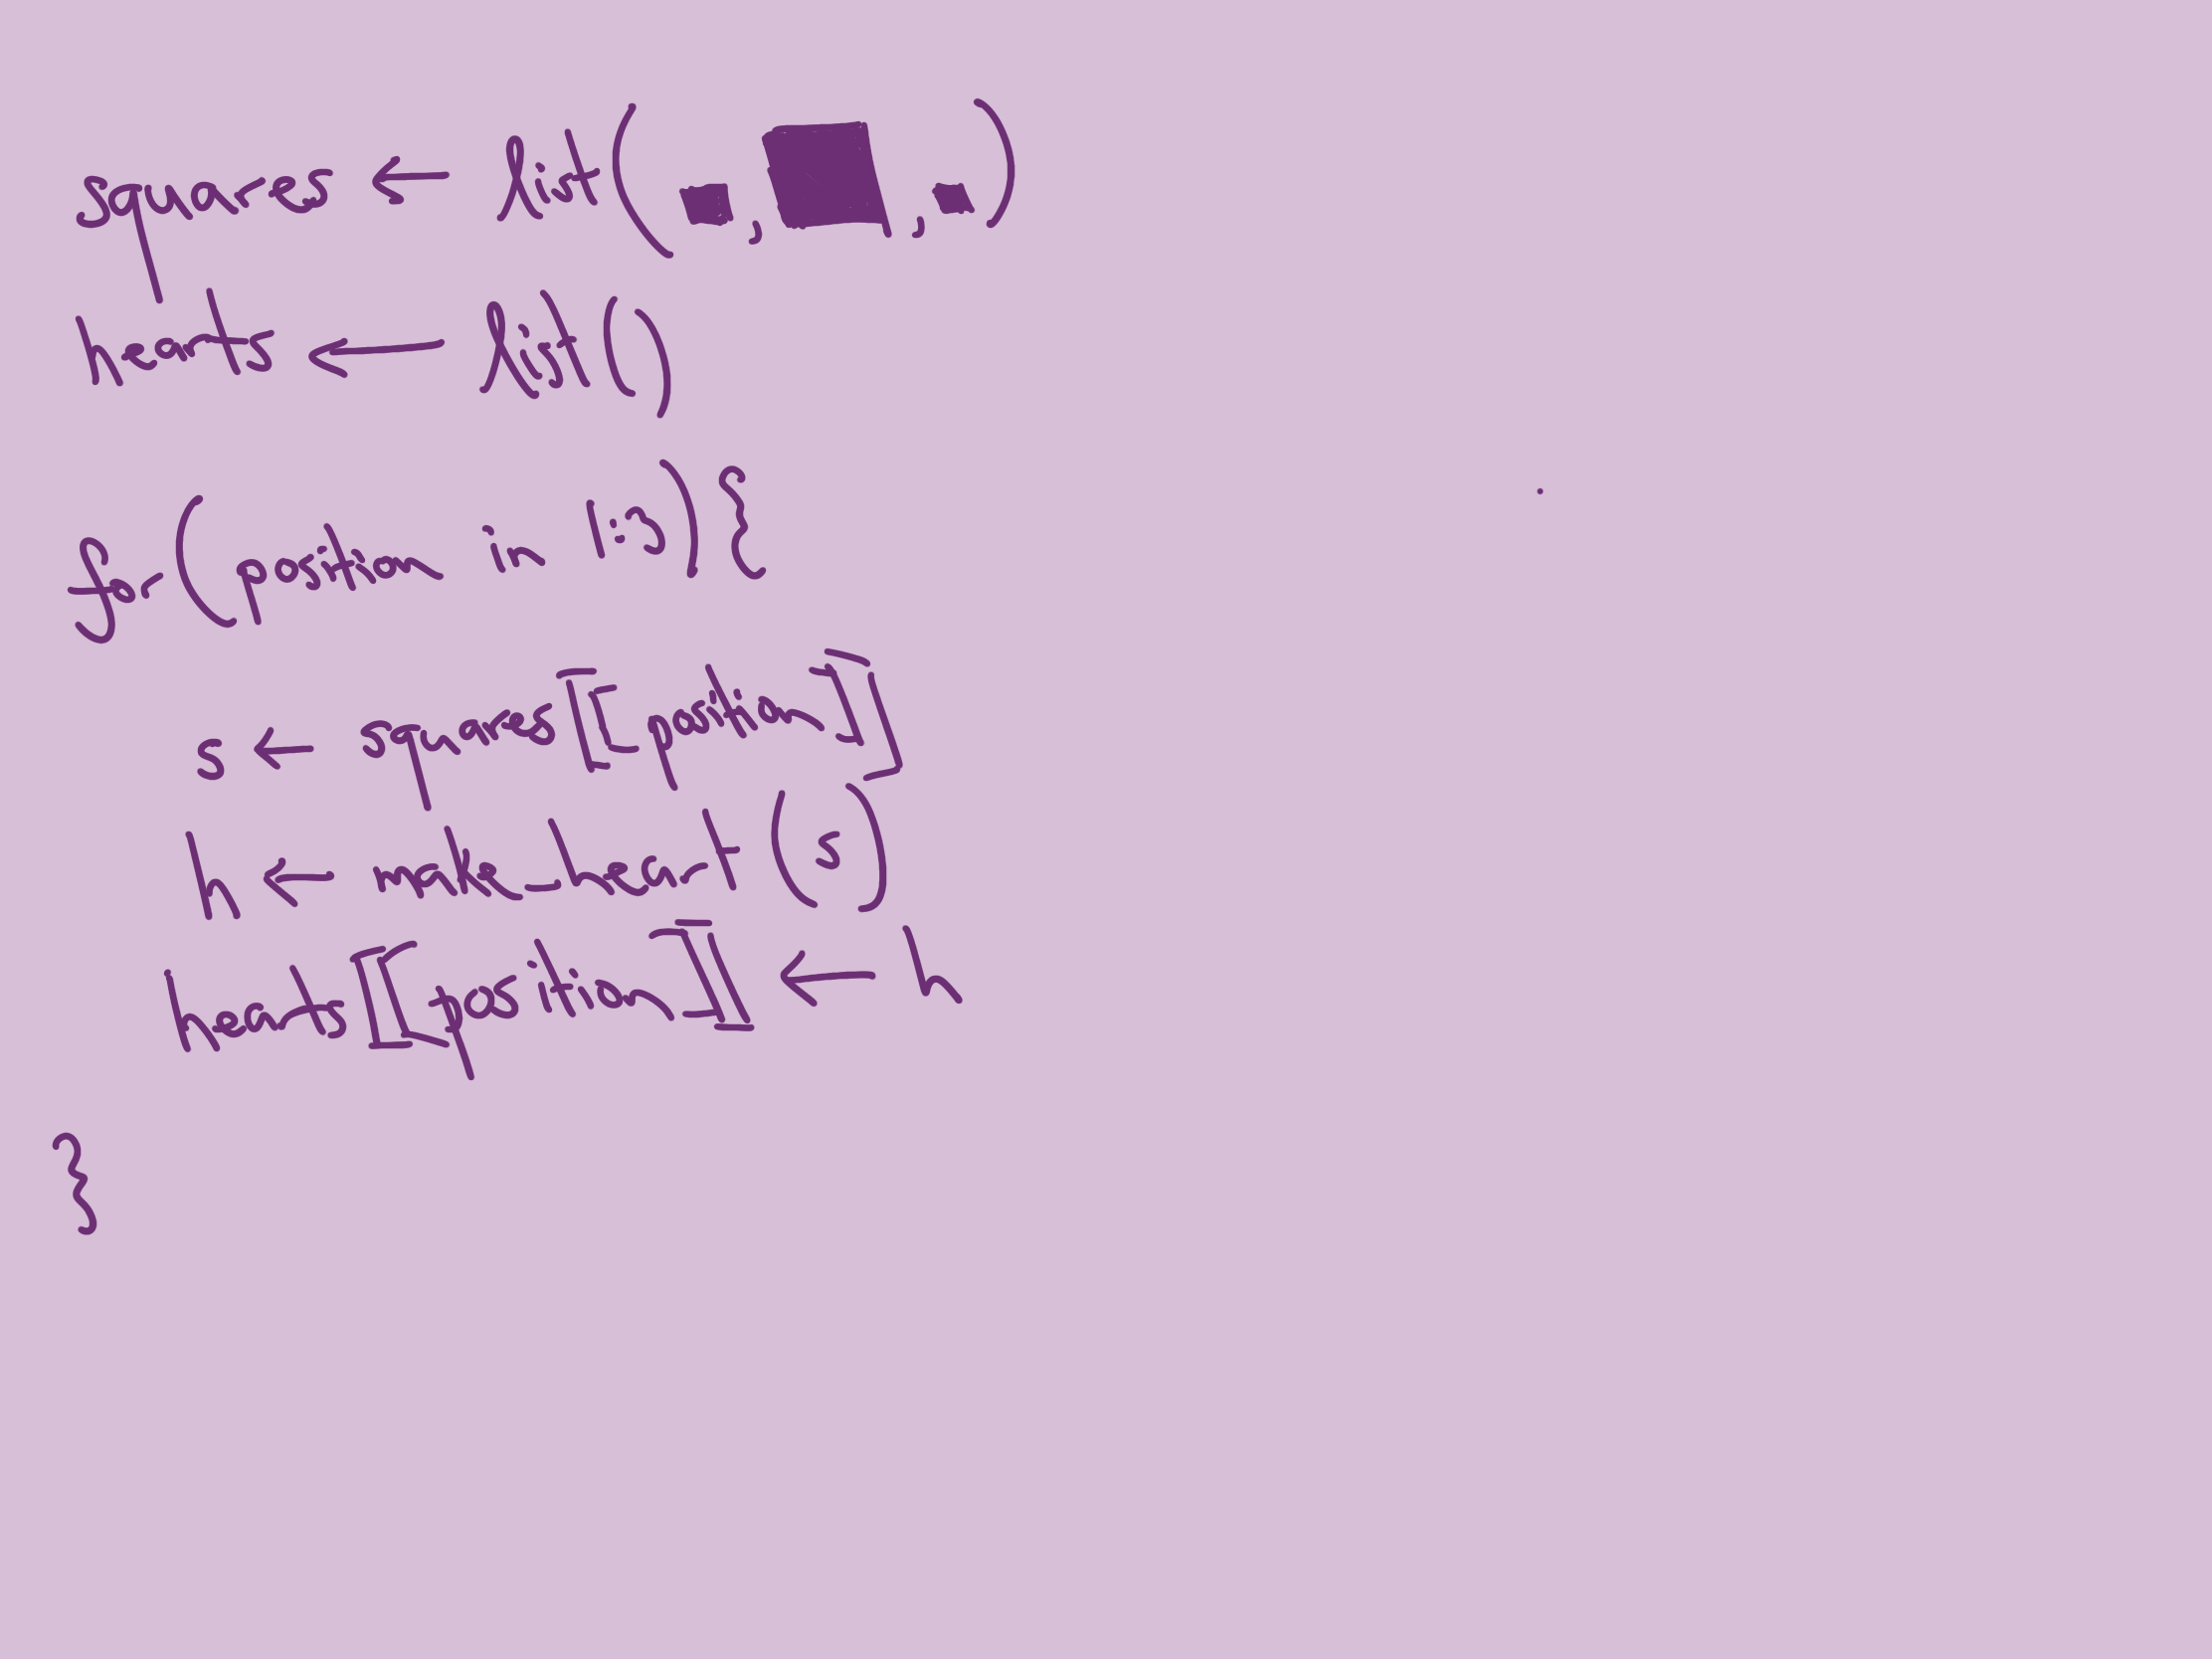 squares ← list(■, ■, ■)
hearts ← list()
for (position in 1:3) {
s ← squares[[position]]
h ← make_heart(s)
hearts[[position]] ← h
}